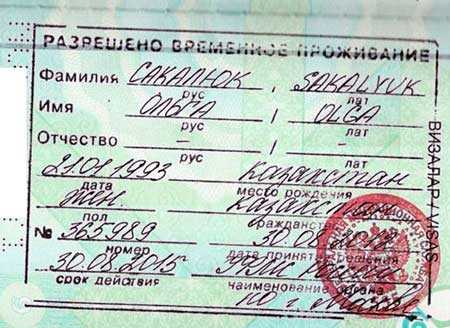 РАЗРЕШЕНО ВРЕМЕННОЕ ПРОЖИВАНИЕ
Фамилия САКАЛЮК , SAKALYUK
рус лат
Имя ОЛЬГА , OLGA
рус лат
Отчество – , –
рус лат
21.01.1993 Казахстан
дата место рождения
жен.
пол гражданство
№ 365989 30.08
номер дата принятия решения
30.08.2015
срок действия наименование органа
по г. Москве
ВИЗАЛАР / VISAS